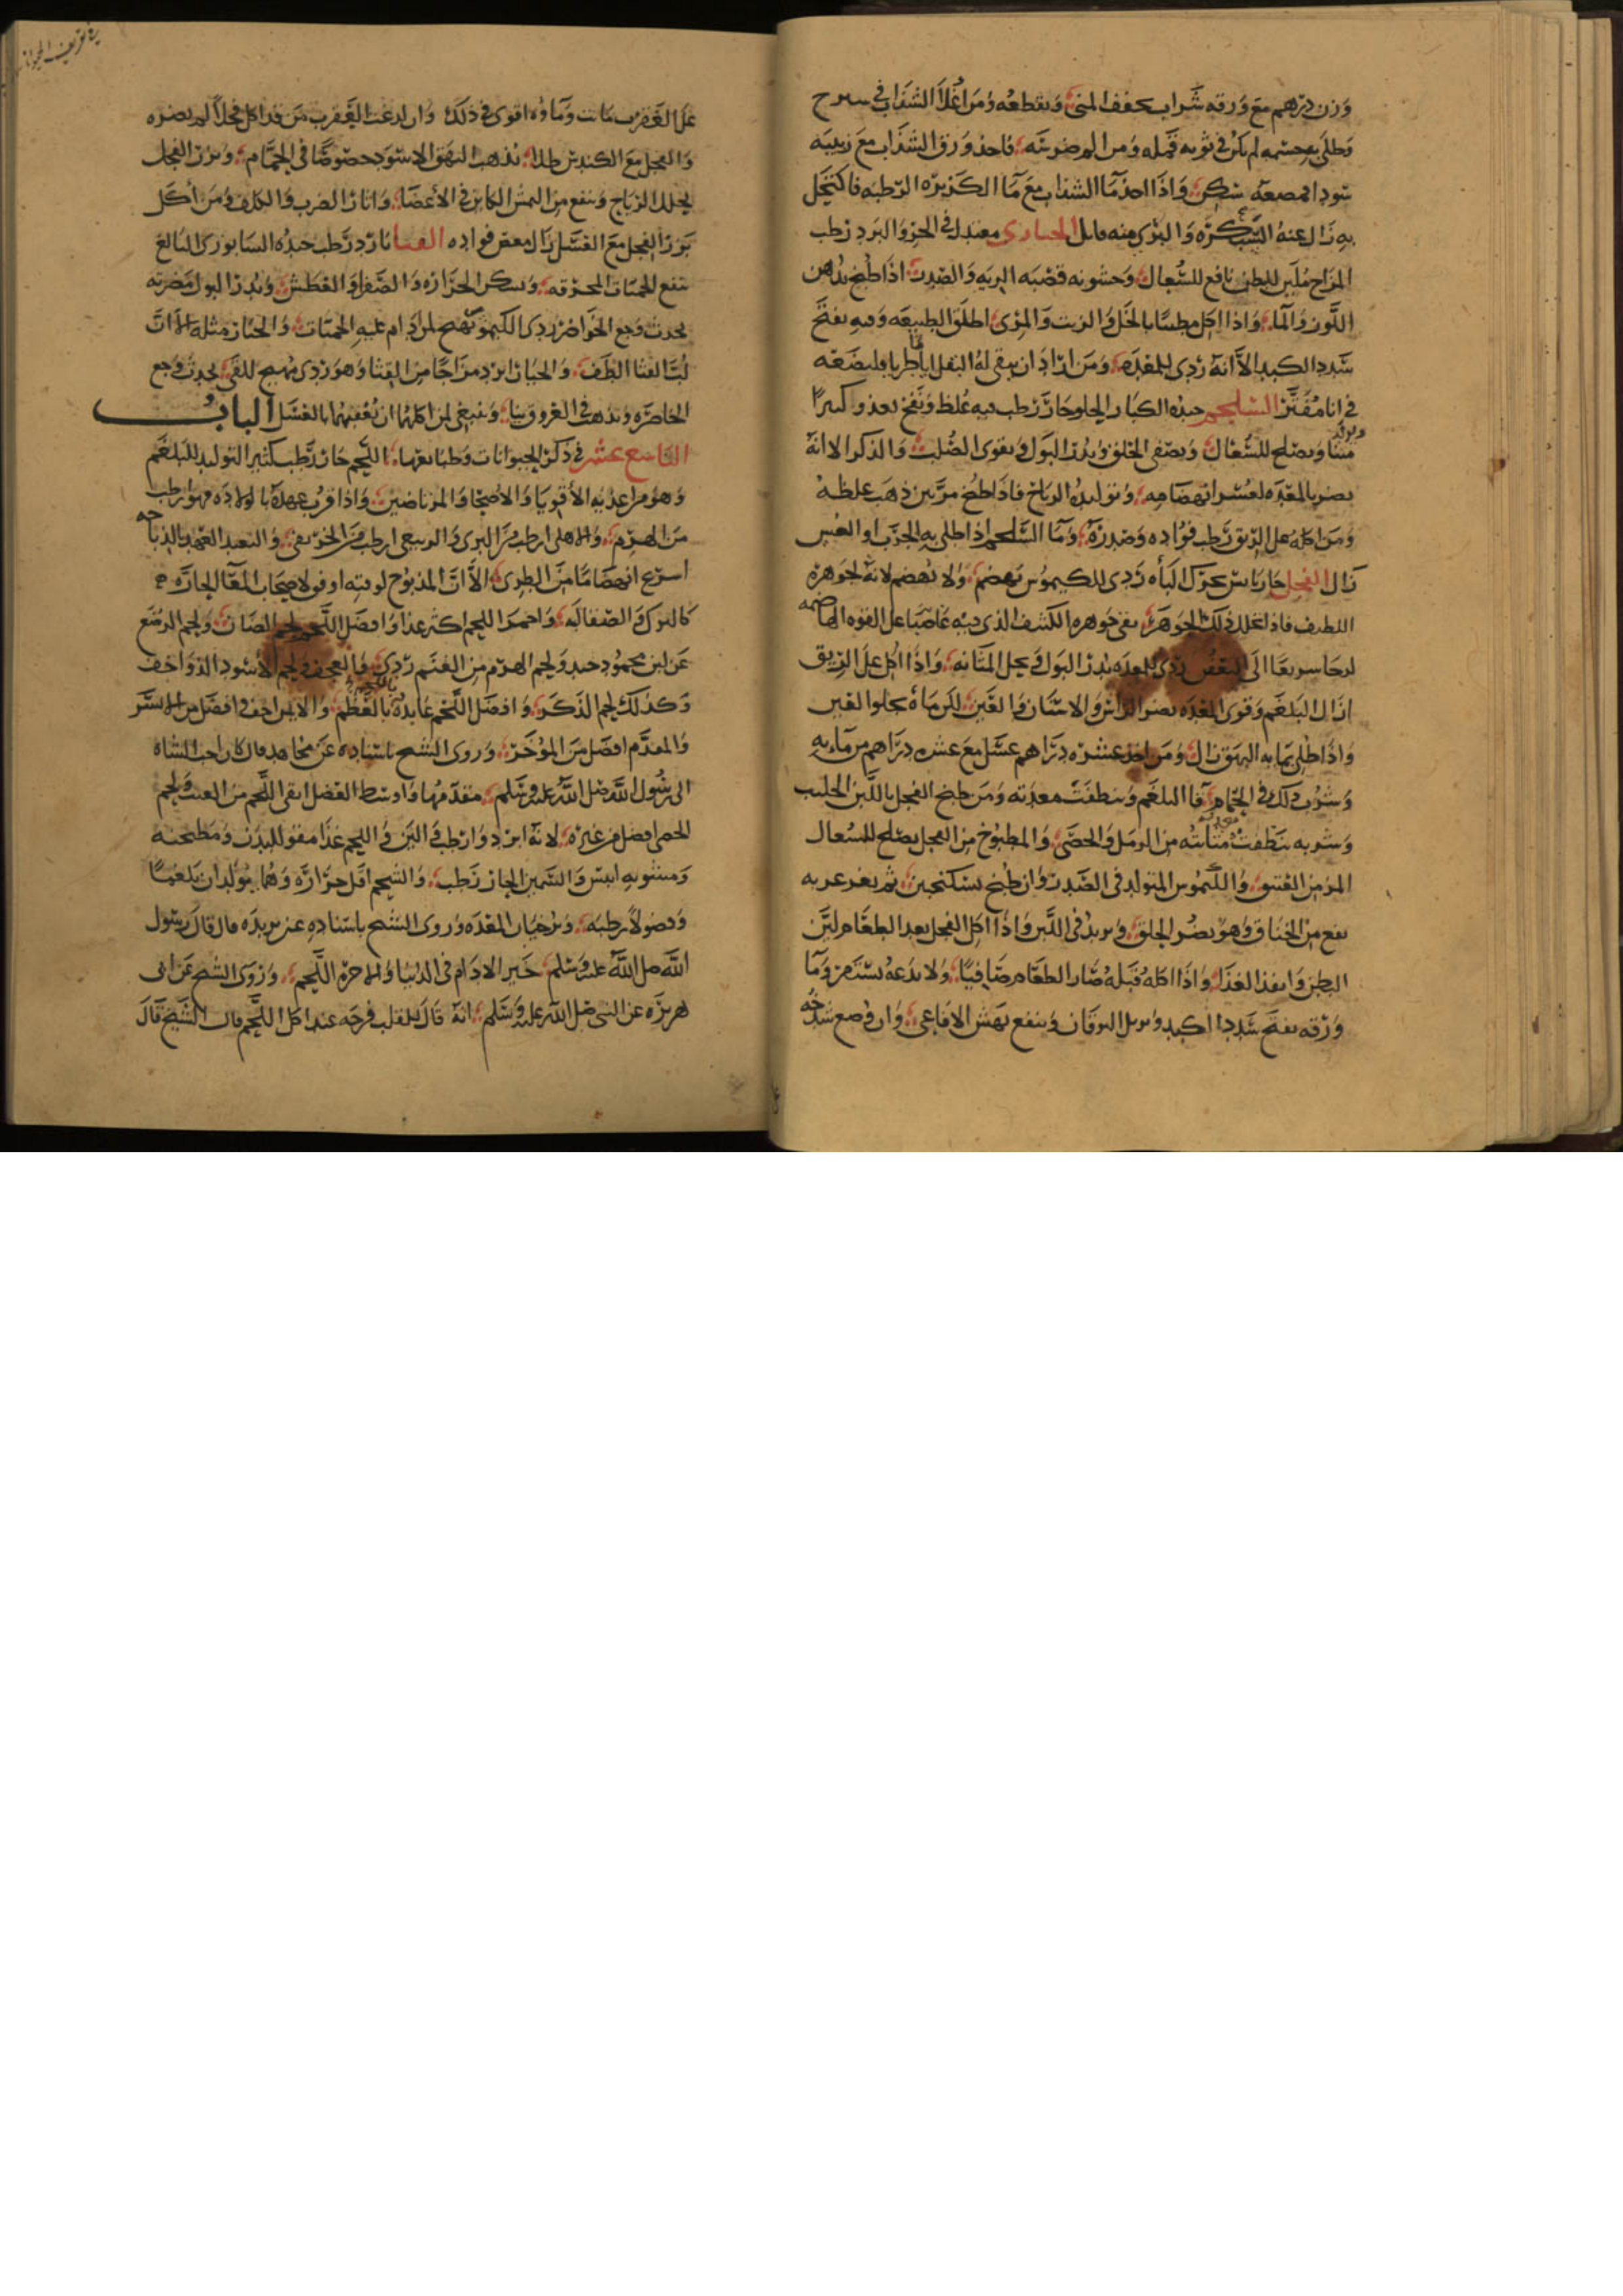 وزن درهم مع ورقه شراب يجفف المنى ويقطعه ومن اغلا الشذاب في سيرج
وطلى به جسمه لم يكن في ثوبه قمله ومن الم ضرسته فاخذ ورق الشذاب مع زبيبة
سودا فمضغه سكن واذا اخذ ما الشذاب مع ما الكزبره الرطبه فاكتحل
به زال عنه الشبكرة والبري منه الخبازى معتدل في الحر والبرد رطب
المزاج ملين للبطن نافع للسعال وخشونه قصبه الريه والصدر اذا طبخ بدهن
اللوز والما واذا اكل بالخل والزيت والمرى اطلق الطبيعه وفيه يفتح
سدد الكبد الا انه ردى للمعده ومن اراد ان يبقى له البقل اياما طريا فليضعه
في انا مقير السلجم جيده الكبار الحلو حار رطب فيه غلظ ونفخ يغذو كثيرا
ويصلح للسعال ويصفى الحلق ويدر البول ويقوى الصلب والذكر الا انه
يضر بالمعده لعسر انهضامه وتوليده الرياح فاذا طبخ مرتين ذهب غلظه
ومن اكله على الريق رطب فواده وصدره وما السلجم اذا طلى به الجرب او
زال الفجل حار يابس يحرك الباه ردى الكيموس يهضم ولا يهضم لانه لجوهره
اللطيف فاذا تحلل ذلك الجوهر بقى جوهره الكثيف الذى فيه عاصيا على القوه الهاضمه
الى التعفن ردى للمعده يدر البول في المثانه واذا اكل على الريق
ازال البلغم وقوى المعده يضر الراس والاسنان والعين لكن ماه يجلوا العين
واذا طلى بمايه البهق زال ومن اخذ عشره دراهم عسل مع عشره دراهم من مايه
وشرب ذلك في الحمام قا البلغم ونظفت معدته ومن طبخ الفجل باللبن الحليب
وشربه نظفت مثانته من الرمل والحصى والمطبوخ من الفجل يصلح للسعال
المزمن العتيق والكيموس المتولد في الصدر وان طبخ بسكنجبين ثم تغرغر به
نفع من الخناق وهو يضر الحلق ويزيد في اللبن واذا اكل الفجل بعد الطعام لين
البطن وانفذ الغذا واذا اكله قبله صار الطعام طافيا ولا يدعه يستقر وما
ورقه يفتح سدد الكبد ويزيل اليرقان وينفع نهش الافاعى وان وضع شدخه
على العقرب ماتت وماوه اقوى في ذلك وان لدغت العقرب من قد اكل فجلا لم يضره
والفجل مع الكندس طلا يذهب البهق الاسود خصوصا في الحمام وبزر الفجل
يحلل الرياح وينفع من النمش الكاين في الاعضا واثار الضرب والكلف ومن اكل
بزر الفجل مع العسل زال مغص فواده القثا بارد رطب جيده النيسابورى البالغ
ينفع للحميات المحرقه ويسكن الحراره والصفرا والعطش ويدر البول مضرته
يحدث وجع الخواصر ردى الكيموس يهيج لمن دام عليه الحميات والخيار مثله الا ان
لب القثا الطف والخيار ابرد مزاجا من القثا وهو ردى مهيج للقى يحدث وجع
الخاصره ويذهب في العروق نيا وينبغى لمن اكلهما ان يعقبهما بالعسل الباب
التاسع عشر في ذكر الحيوانات وطبائعها اللحم حار رطب كثير التوليد للبلغم
وهو من اغذيه الاقويا والاصحا والمرتاضين واذا قرب عهده بالولاده فهو ارطب
من الهرم والاهلى ارطب من البرى والربيعى ارطب من الخريفى والبعيد العهد بالذباحه
اسرع انهضاما من الطرى الا ان المذبوح لوقته اوفق لاصحاب المعا الحاره
كالترك والصقالبه واحمر اللحم اكثر غذا وافضل اللحم لحم الضان ولحم الرضع
عن لبن محمود جيد ولحم الهرم من الغنم ردى والعجف ولحم الاسود الذ واخف
وكذلك لحم الذكر وافضل اللحم عايده بالعظم والايمن اخف وافضل من الايسر
والمقدم افضل من المؤخر وروى الشيخ باسناده عن مجاهد قال كان احب الشاه
الى رسول الله صلى الله عليه وسلم مقدمها
افضل من غيره لانه ابرد وارطب والين واللحم غذا مقو للبدن ومطجنه
ومشويه ايبس والسمين الحار رطب والشحم اقل حراره وهما يولدان بلغما
وفضولا رطبه ويرخيان المعده وروى الشيخ باسناده عن بريده قال قال رسول
الله صلى الله عليه وسلم خير الادام في الدنيا والاخره اللحم وروى الشيخ عن ابى
هريره عن النبى صلى الله عليه وسلم انه قال للقلب فرحه عند اكل اللحم قال الشيخ قال